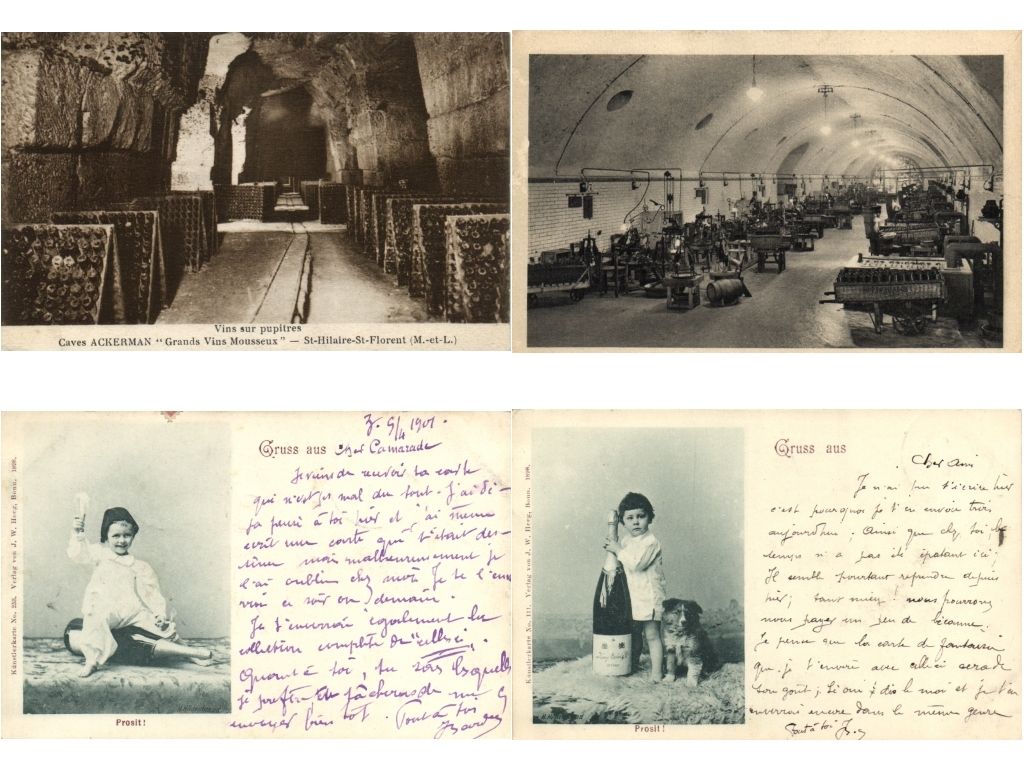 Vins sur pupitres
Caves ACKERMAN "Grands Vins Mousseux" — St-Hilaire-St-Florent (M.-et-L.)
Künstlerkarte No. 235. Verlag von J. W. Heeg, Bonn. 1898.
Prosit!
Gruss aus
9/4 1901.
Cher Camarade
Je viens de recevoir ta carte
qui n'est pas mal du tout. J'ai dé-
jà pensé à toi hier et j'ai même
écrit une carte qui t'était des-
tinée mais malheureusement je
l'ai oubliée chez moi. Je te l'en-
verrai ce soir ou demain.
Je t'enverrai également la
collection complète de celle-ci.
Quant à toi, tu sais lesquelles
je préfère tâcheras de m'en
envoyer bientôt. Tout à toi
Künstlerkarte No. 111. Verlag von J. W. Heeg, Bonn. 1898.
Prosit!
Gruss aus
Cher Ami
Je n'ai pu t'écrire hier
c'est pourquoi je t'en envoie trois
aujourd'hui. Ainsi que chez toi, le
temps n'a pas été épatant ici.
Il semble pourtant reprendre depuis
hier; tant mieux! nous pourrons
nous payer un peu de bécanne.
Je pense que la carte de fantaisie
que je t'envoie avec celle-ci sera de
bon goût; si oui dis le moi et je t'en
enverrai encore dans le même genre
Tout à toi